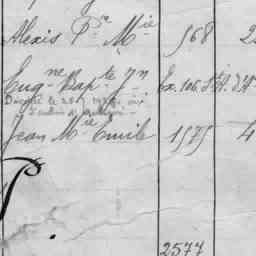 Alexis Pre Mie 568 2
Eugne Bapte Jn Ex. 106. St A. d'A
Décédé le
Jean Mie Emile 1575 4
P.
2577